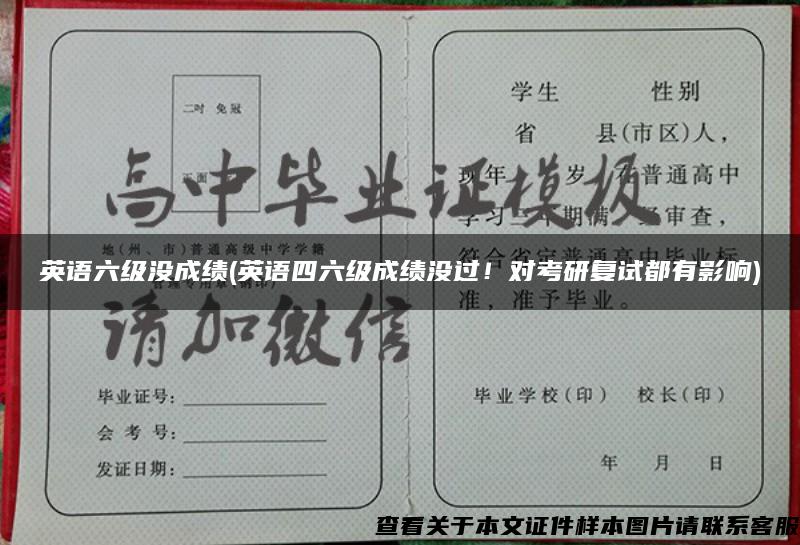 二吋 免冠
正面
地(州、市)普通高级中学学籍
管理专用章(钢印)
毕业证号：
会 考 号：
发证日期：
学生 性别
省 县(市区)人，
现年 岁，在普通高中
学习三年期满，经审查，
符合省定普通高中毕业标
准，准予毕业。
毕业学校(印) 校长(印)
年 月 日
高中毕业证模板
请加微信
英语六级没成绩(英语四六级成绩没过！对考研复试都有影响)
查看关于本文证件样本图片请联系客服